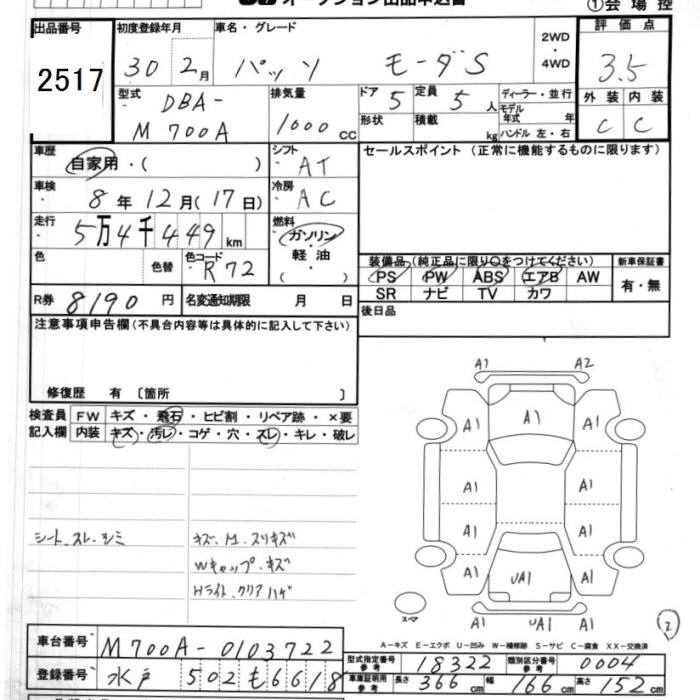 オークション出品申込書
①会場控
出品番号 2517
初度登録年月 30 2月
車名・グレード パッソ モーダS
2WD ・ 4WD
評価点 3.5
外装 C 内装 C
型式 DBA-M700A
排気量 1000 CC
ドア 5 定員 5人
形状 積載 kg
ディーラー・並行
モデル年式 年
ハンドル 左・右
車歴 自家用・( )
シフト AT
セールスポイント (正常に機能するものに限ります)
車検 8年12月(17日)
冷房 AC
走行 5万4千449km
燃料 ガソリン・軽油 ( )
色 色替 色コード R72
装備品(純正品に限り○をつけてください)
新車保証書 有・無
PS PW ABS エアB AW
SR ナビ TV カワ
R券 8190円
名変通知期限 月 日
後日品
注意事項申告欄(不具合内容等は具体的に記入して下さい)
修復歴 有 〔箇所 〕
検査員記入欄
FW キズ・飛石・ヒビ割・リペア跡・×要
内装 キズ・汚レ・コゲ・穴・スレ・キレ・破レ
シート、スレ、シミ
キズ、M、スリキズ
Wキャップ、キズ
Hライト、クリアハゲ
A1 A2
A1 A1 A1
A1 A1
A1 A1
A1 UA1 A1
A1 UA1 A1
スペア
2
A-キズ E-エクボ U-凹み W-補修跡 S-サビ C-腐食 XX-交換済
車台番号 M700A-0103722
登録番号 水戸 502 も 6618
型式指定番号 参考 18322
類別区分番号 参考 0004
車庫証明用 参考 長さ 366cm 幅 166cm 高さ 152cm